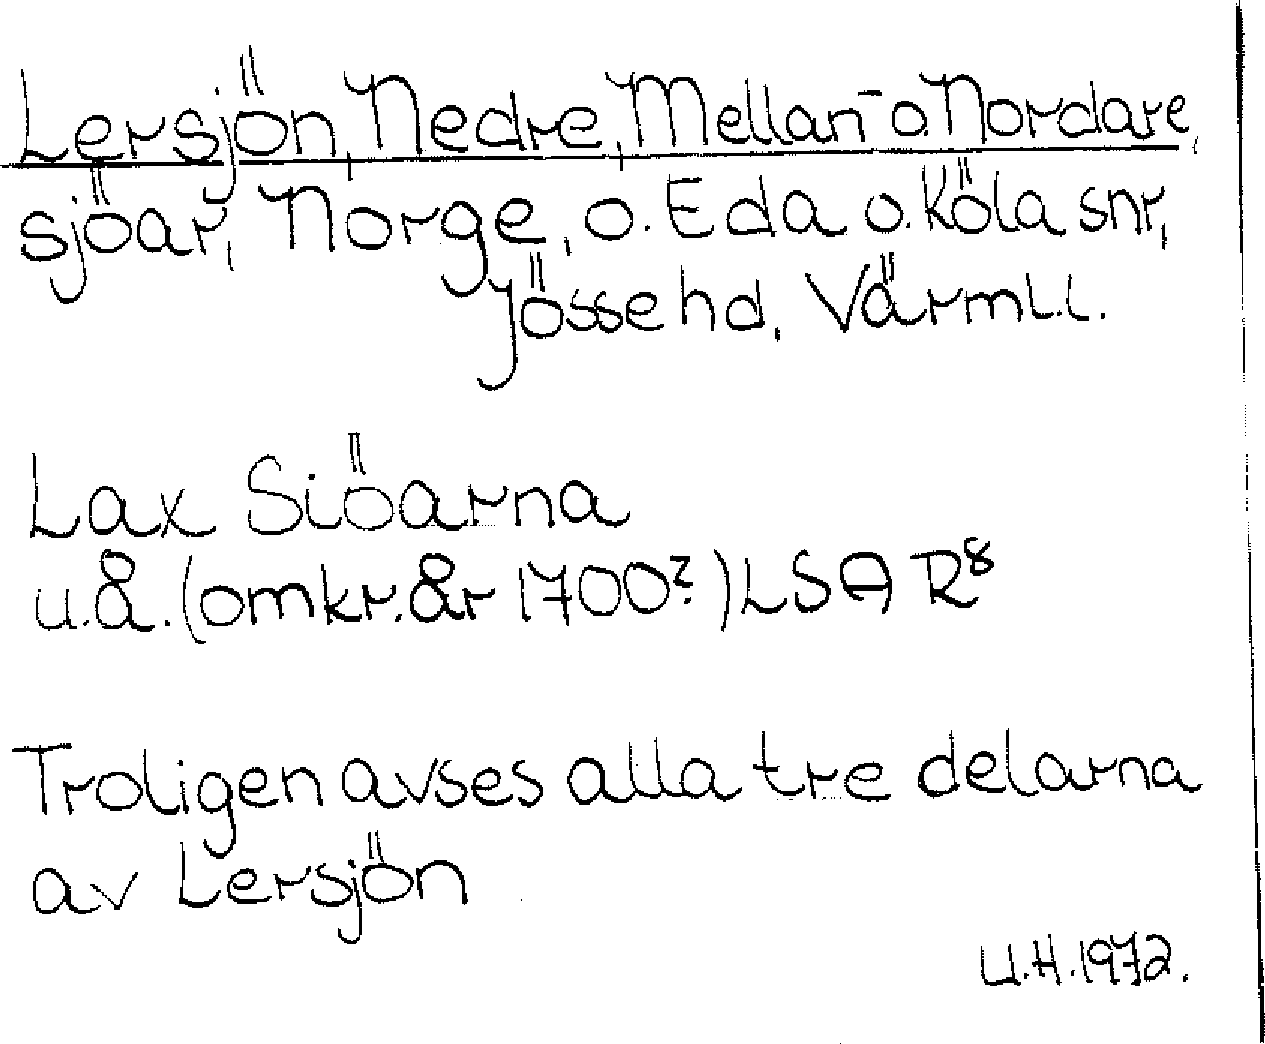 Lersjön, Nedre, Mellan- o. Nordare,
sjöar, Norge, o. Eda o. Köla snr,
Jössehd, Värml.l.
Lax Siöarna
u.å. (omkr. år 1700?) LSA R8
Troligen avses alla tre delarna
av Lersjön
U.H. 1972.